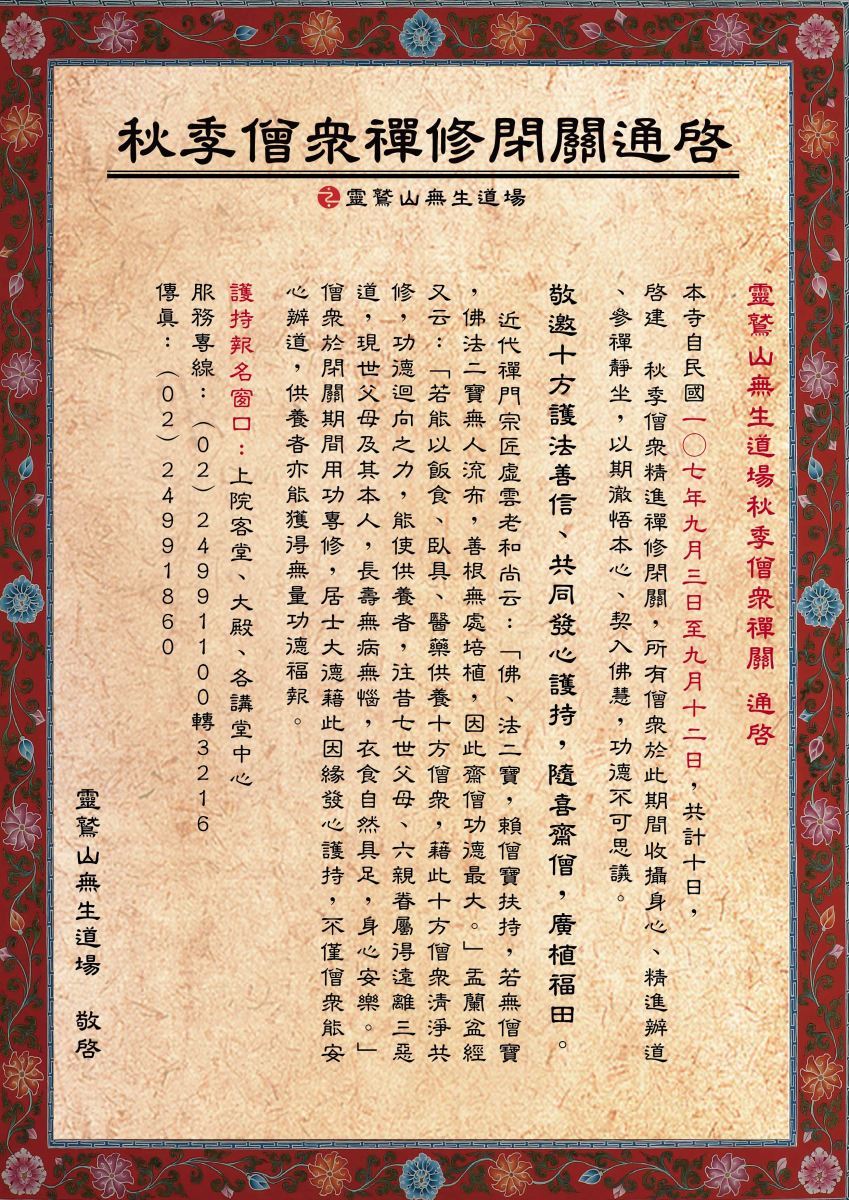 秋季僧眾禪修閉關通啓
靈鷲山無生道場
靈鷲山無生道場秋季僧眾禪關 通啓
本寺自民國一〇七年九月三日至九月十二日，共計十日，
啓建 秋季僧眾精進禪修閉關，所有僧眾於此期間收攝身心、精進辦道
、參禪靜坐，以期澈悟本心、契入佛慧，功德不可思議。
敬邀十方護法善信、共同發心護持，隨喜齋僧，廣植福田。
近代禪門宗匠虛雲老和尚云：「佛、法二寶，賴僧寶扶持，若無僧寶
，佛法二寶無人流布，善根無處培植，因此齋僧功德最大。」盂蘭盆經
又云：「若能以飯食、臥具、醫藥供養十方僧眾，藉此十方僧眾清淨共
修，功德迴向之力，能使供養者，往昔七世父母、六親眷屬得遠離三惡
道，現世父母及其本人，長壽無病無惱，衣食自然具足，身心安樂。」
僧眾於閉關期間用功專修，居士大德藉此因緣發心護持，不僅僧眾能安
心辦道，供養者亦能獲得無量功德福報。
護持報名窗口：上院客堂、大殿、各講堂中心
服務專線：（02）24991100轉3216
傳真：（02）24991860
靈鷲山無生道場 敬啓